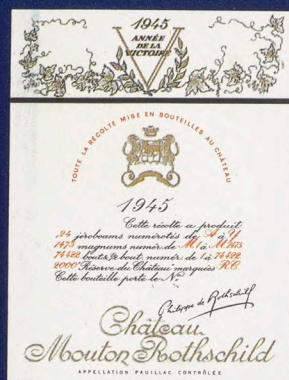 1945
ANNÉE
DE LA
VICTOIRE
TOUTE LA RÉCOLTE MISE EN BOUTEILLES AU CHÂTEAU
1945
Cette récolte a produit
24 jéroboams numérotés de A à Y
1475 magnums numér. de M1 à M1475
74422 bout. & ½ bout. numér. de 1 à 74422
2000 "Réserve du Château" marquées R.C.
Cette bouteille porte le No
Philippe de Rothschild
Château
Mouton Rothschild
APPELLATION PAUILLAC CONTRÔLÉE